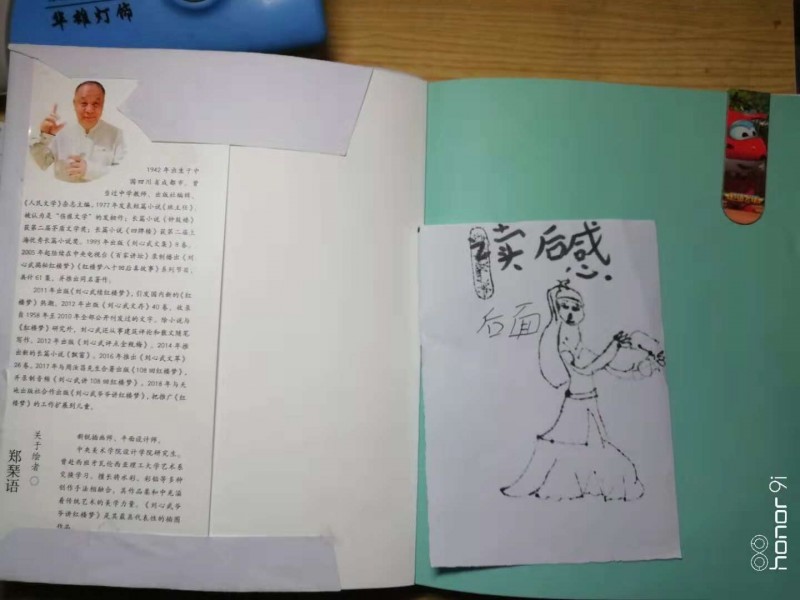 华雄灯饰
1942年出生于中
国四川省成都市，曾
当过中学教师、出版社编辑、
《人民文学》杂志主编。1977年发表短篇小说《班主任》，
被认为是“伤痕文学”的发轫作；长篇小说《钟鼓楼》
获第二届茅盾文学奖；长篇小说《四牌楼》获第二届上
海优秀长篇小说奖。1993年出版《刘心武文集》8卷。
2005年起陆续在中央电视台《百家讲坛》录制播出《刘
心武揭秘红楼梦》《红楼梦八十回后真故事》系列节目，
共计61集，并推出同名著作。
2011年出版《刘心武续红楼梦》，引发国内新的《红
楼梦》热潮。2012年出版《刘心武文存》40卷，收录
自1958年至2010年全部公开刊发过的文字。除小说与
《红楼梦》研究外，刘心武还从事建筑评论和散文随笔
写作。2012年出版《刘心武评点金瓶梅》。2014年推
出新的长篇小说《飘窗》。2016年推出《刘心武文粹》
26卷。2017年与周汝昌先生合著出版《108回红楼梦》，
并录制音频《刘心武讲108回红楼梦》。2018年与天
地出版社合作出版《刘心武爷爷讲红楼梦》，把推广《红
楼梦》的工作扩展到儿童。
关于绘者
郑琹语
新锐插画师、平面设计师。
中央美术学院设计学院研究生，
曾赴西班牙瓦伦西亚理工大学艺术系
交换学习。擅长将水彩、彩铅等多种
创作手法相融合，其作品柔和中充溢
着传统艺术的美学力量。《刘心武爷
爷讲红楼梦》是其最具代表性的插图
作品。
读后感
后面
honor 9i